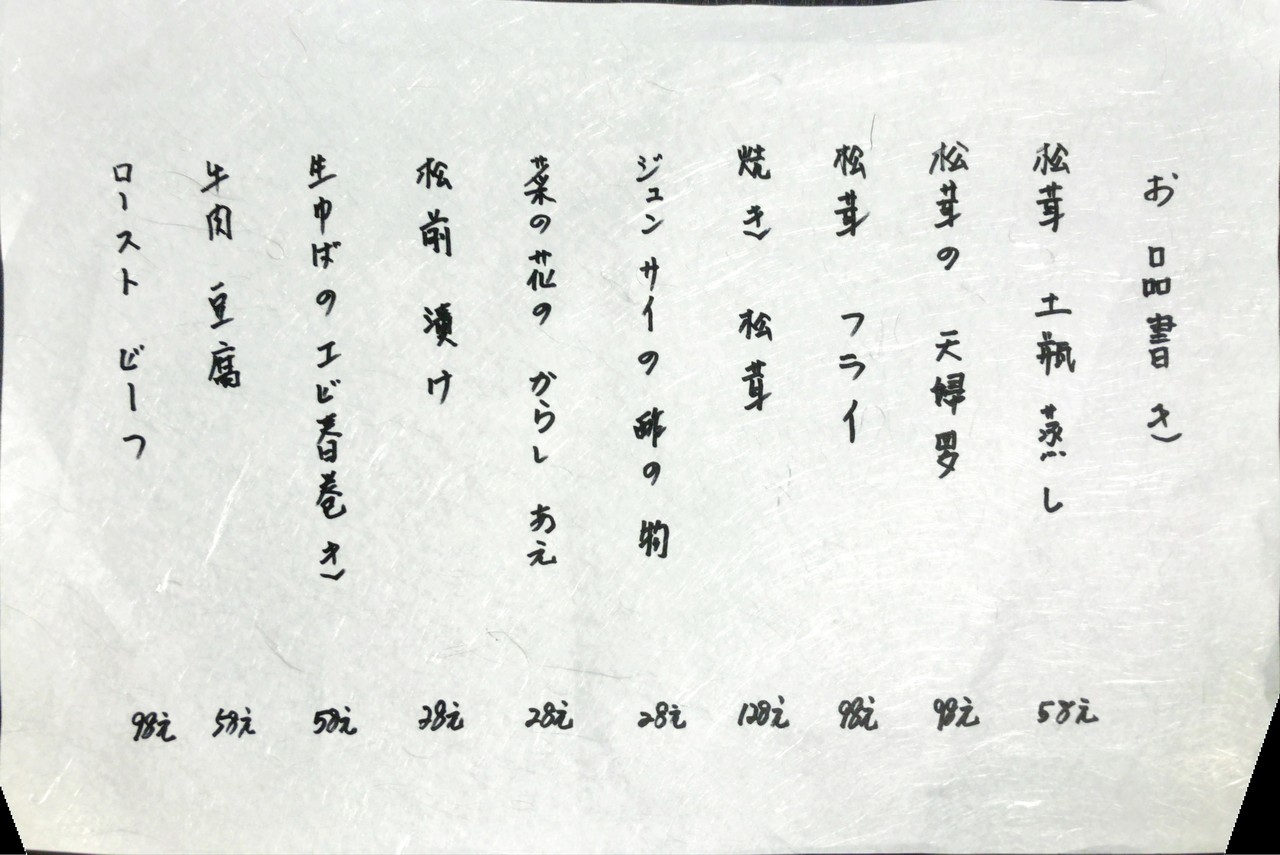 お品書き
松茸 土瓶 蒸し 58元
松茸の 天婦罗 98元
松茸 フライ 98元
焼き 松茸 128元
ジュンサイの 酢の 物 28元
菜の花の からし あえ 28元
松前 漬け 28元
生ゆばのエビ春巻き 58元
牛肉 豆腐 58元
ロースト ビーフ 98元